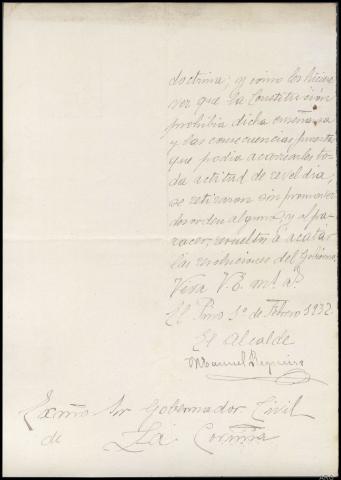 doctrina; y como les hiciese
ver que la Constitución
prohibia dicha enseñanza
y las consecuencias
que podia acarrearles to-
da actitad de reveldia;
se retiraron sin promover
desorden alguno y al pa-
racer, resueltos á acatar
las resoluciones del Gobierno.
Viva V.E. ms. as.
El Pino 1º de Febrero 1932.
El Alcalde
Manuel
Excmo Sr Gobernador Civil
de La Coruña